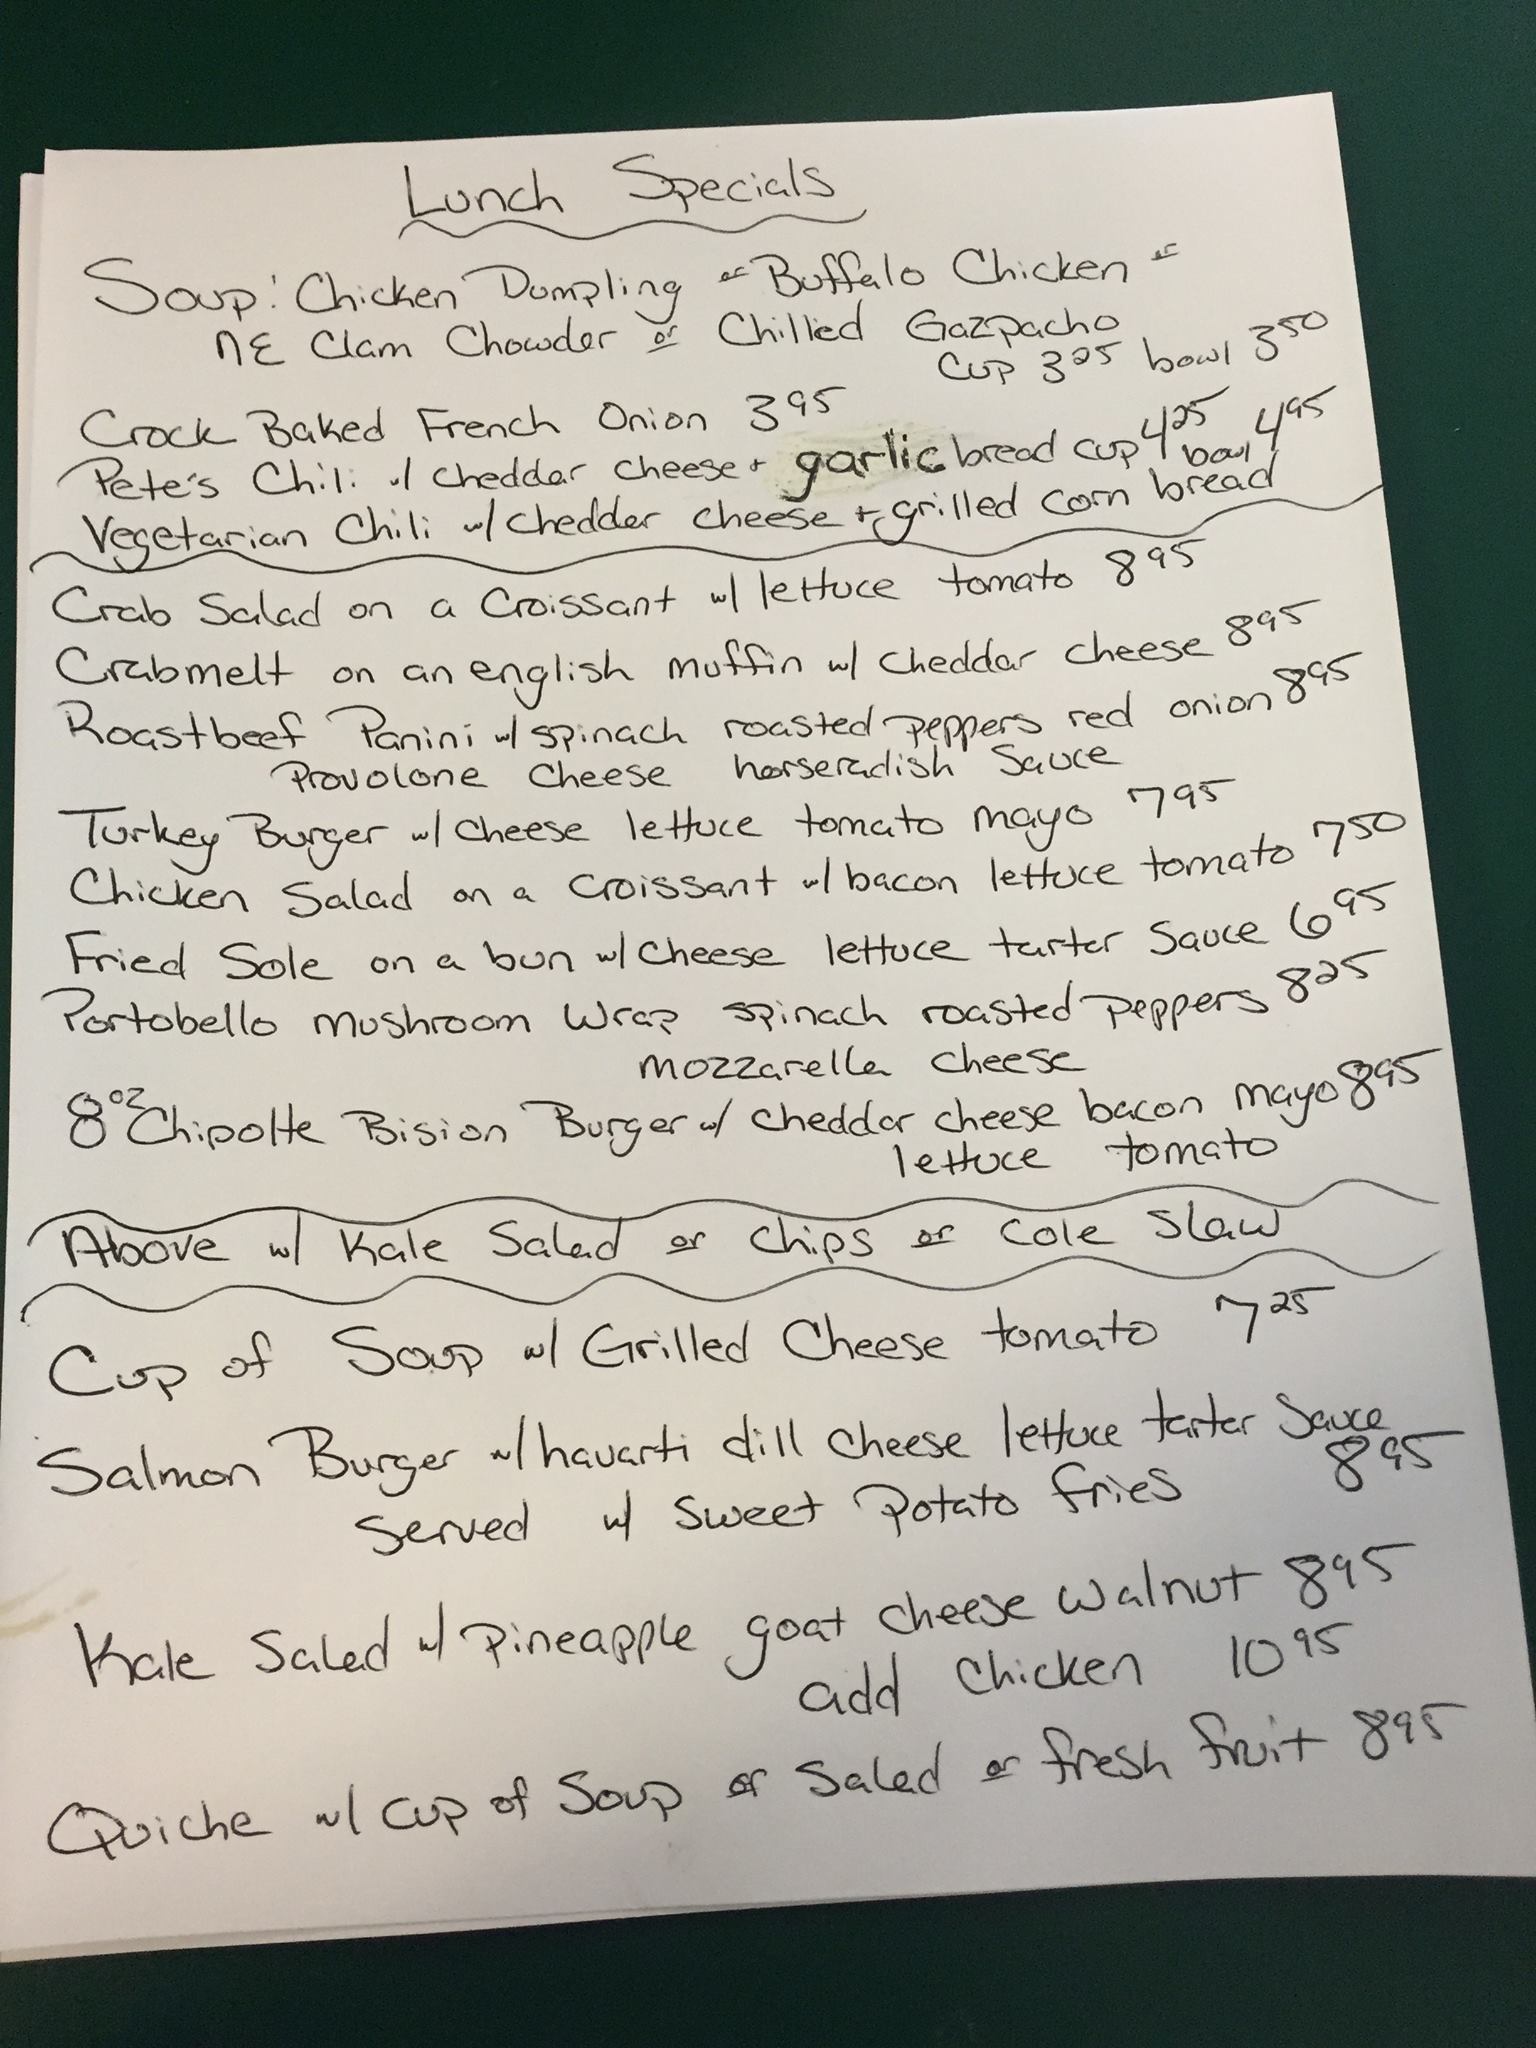 Lunch Specials
Soup: Chicken Dumpling or Buffalo Chicken or
NE Clam Chowder or Chilled Gazpacho
Cup 3 25 bowl 3 50
Crock Baked French Onion 3 95
Pete's Chili w/ cheddar cheese + garlic bread cup 4 25 bowl 4 95
Vegetarian Chili w/ chedder cheese + grilled corn bread
Crab Salad on a Croissant w/ lettuce tomato 8 95
Crabmelt on an english muffin w/ cheddar cheese 8 95
Roastbeef Panini w/ spinach roasted peppers red onion 8 95
Provolone cheese horseradish Sauce
Turkey Burger w/ cheese lettuce tomato mayo 7 95
Chicken Salad on a croissant w/ bacon lettuce tomato 7 50
Fried Sole on a bun w/ cheese lettuce tarter Sauce 6 95
Portobello mushroom Wrap spinach roasted peppers 8 25
mozzarella cheese
8 oz Chipolte Bision Burger w/ cheddar cheese bacon mayo 8 95
lettuce tomato
Above w/ Kale Salad or chips or cole slaw
Cup of Soup w/ Grilled Cheese tomato 7 25
Salmon Burger w/ havarti dill cheese lettuce tarter Sauce
served w/ sweet potato fries 8 95
Kale Salad w/ pineapple goat cheese walnut 8 95
add chicken 10 95
Quiche w/ cup of soup or salad or fresh fruit 8 95